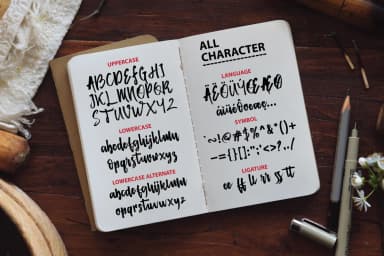 UPPERCASE
ABCDEFGHI
JKLMNOPQR
STUVWXYZ
LOWERCASE
abcdefghijklmn
opqrstuvwxyz
LOWERCASE ALTERNATE
abcdefghijklmn
opqrstuvwxyz
ALL
CHARACTER
LANGUAGE
SYMBOL
LIGATURE
ee ff ll rr ss tt